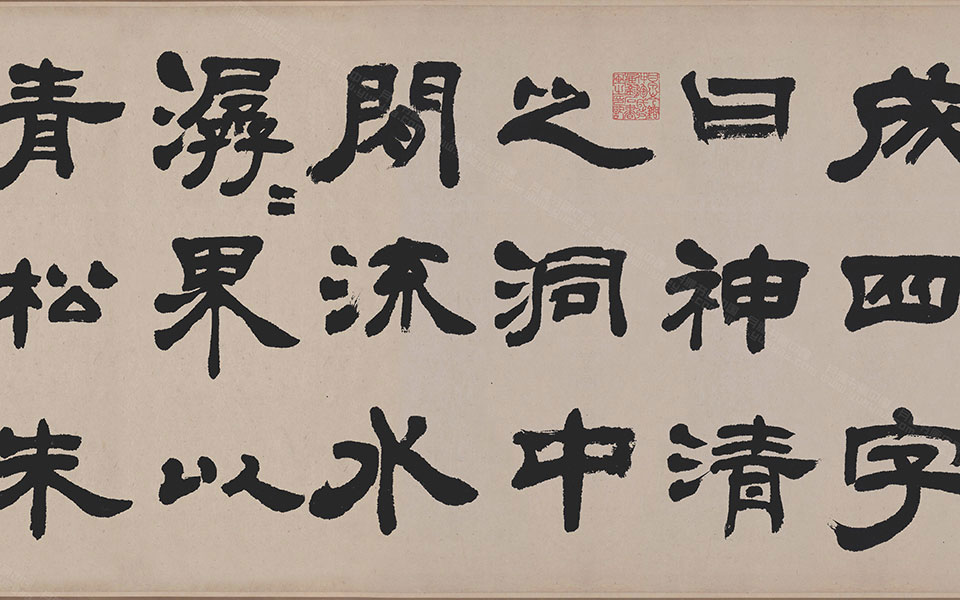 成四字
曰神清
之洞中
閒流水
潺〻果以
青松朱